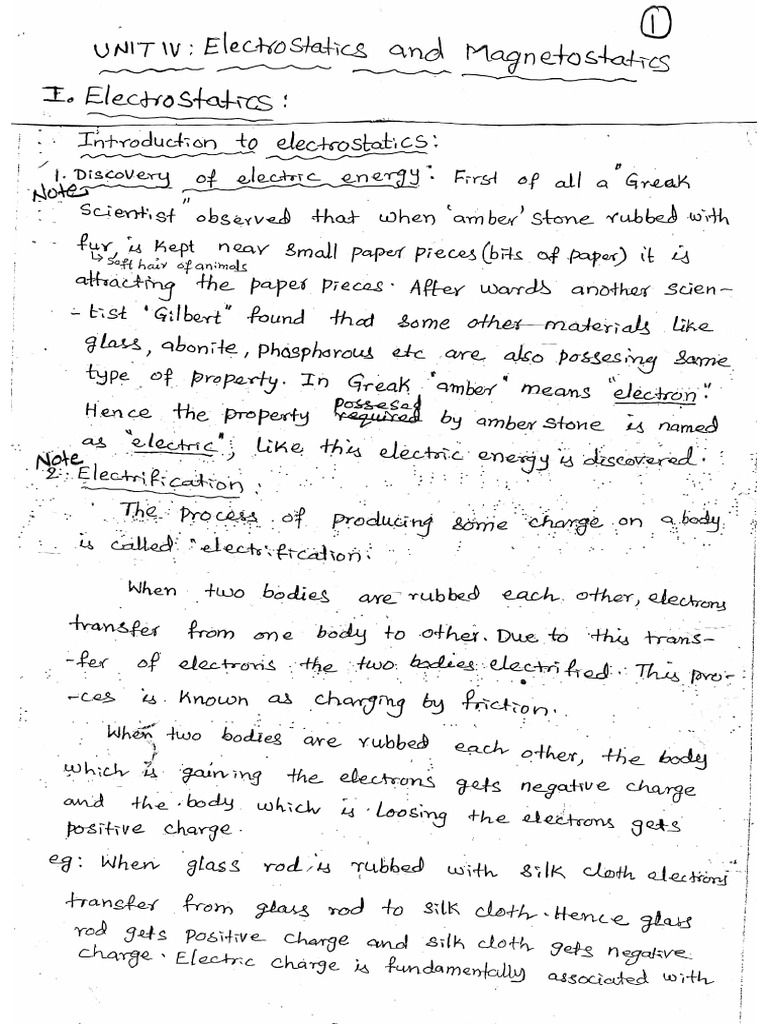 1
UNIT IV: Electrostatics and Magnetostatics
I. Electrostatics:
Introduction to electrostatics:
1. Discovery of electric energy: First of all a "Greak
Note
Scientist" observed that when 'amber' stone rubbed with
fur, is kept near small paper pieces (bits of paper) it is
↳ soft hair of animals
attracting the paper pieces. After wards another scien-
-tist 'Gilbert" found that some other materials like
glass, abonite, phosphorous etc are also possesing same
type of property. In Greak "amber" means "electron".
possesed
Hence the property required by amber stone is named
as "electric"; Like this electric energy is discovered.
Note
2. Electrification:
The process of producing some charge on a body
is called "electrification.
When two bodies are rubbed each other, electrons
transfer from one body to other. Due to this trans-
-fer of electrons the two bodies electrified. This pro-
-ces is known as charging by friction.
When two bodies are rubbed each other, the body
which is gaining the electrons gets negative charge
and the body which is loosing the electrons gets
positive charge.
eg: When glass rod is rubbed with silk cloth electrons
transfer from glass rod to silk cloth. Hence glass
rod gets positive charge and silk cloth gets negative
charge. Electric charge is fundamentally associated with